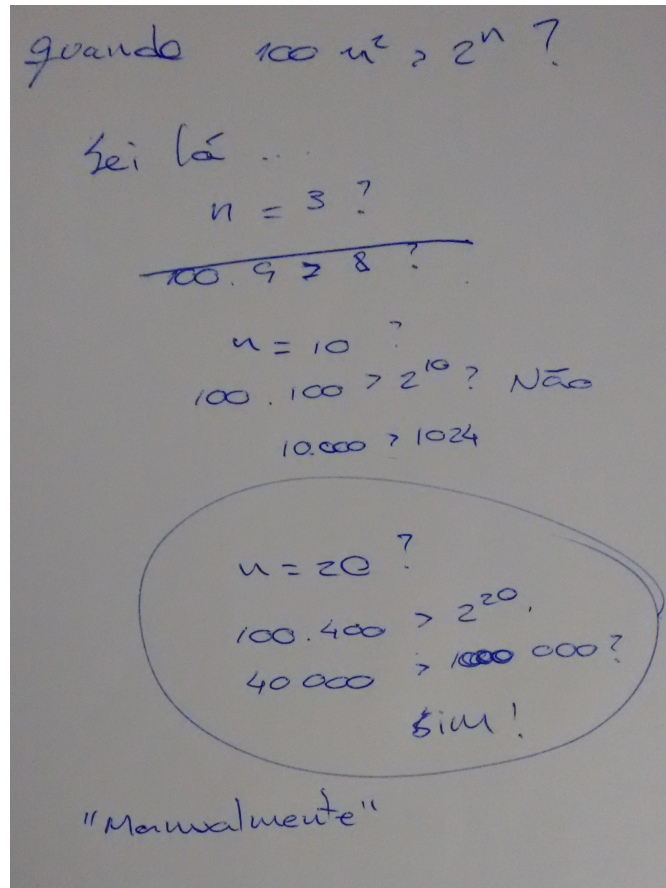 quando 100 n² > 2ⁿ ?
Sei lá ..
n = 3 ?
100 . 9 > 8 ?
n = 10 ?
100 . 100 > 2¹⁰ ? Não
10.000 > 1024
n = 20 ?
100 . 400 > 2²⁰.
40 000 > 1000 000 ?
Sim !
"Manualmente"